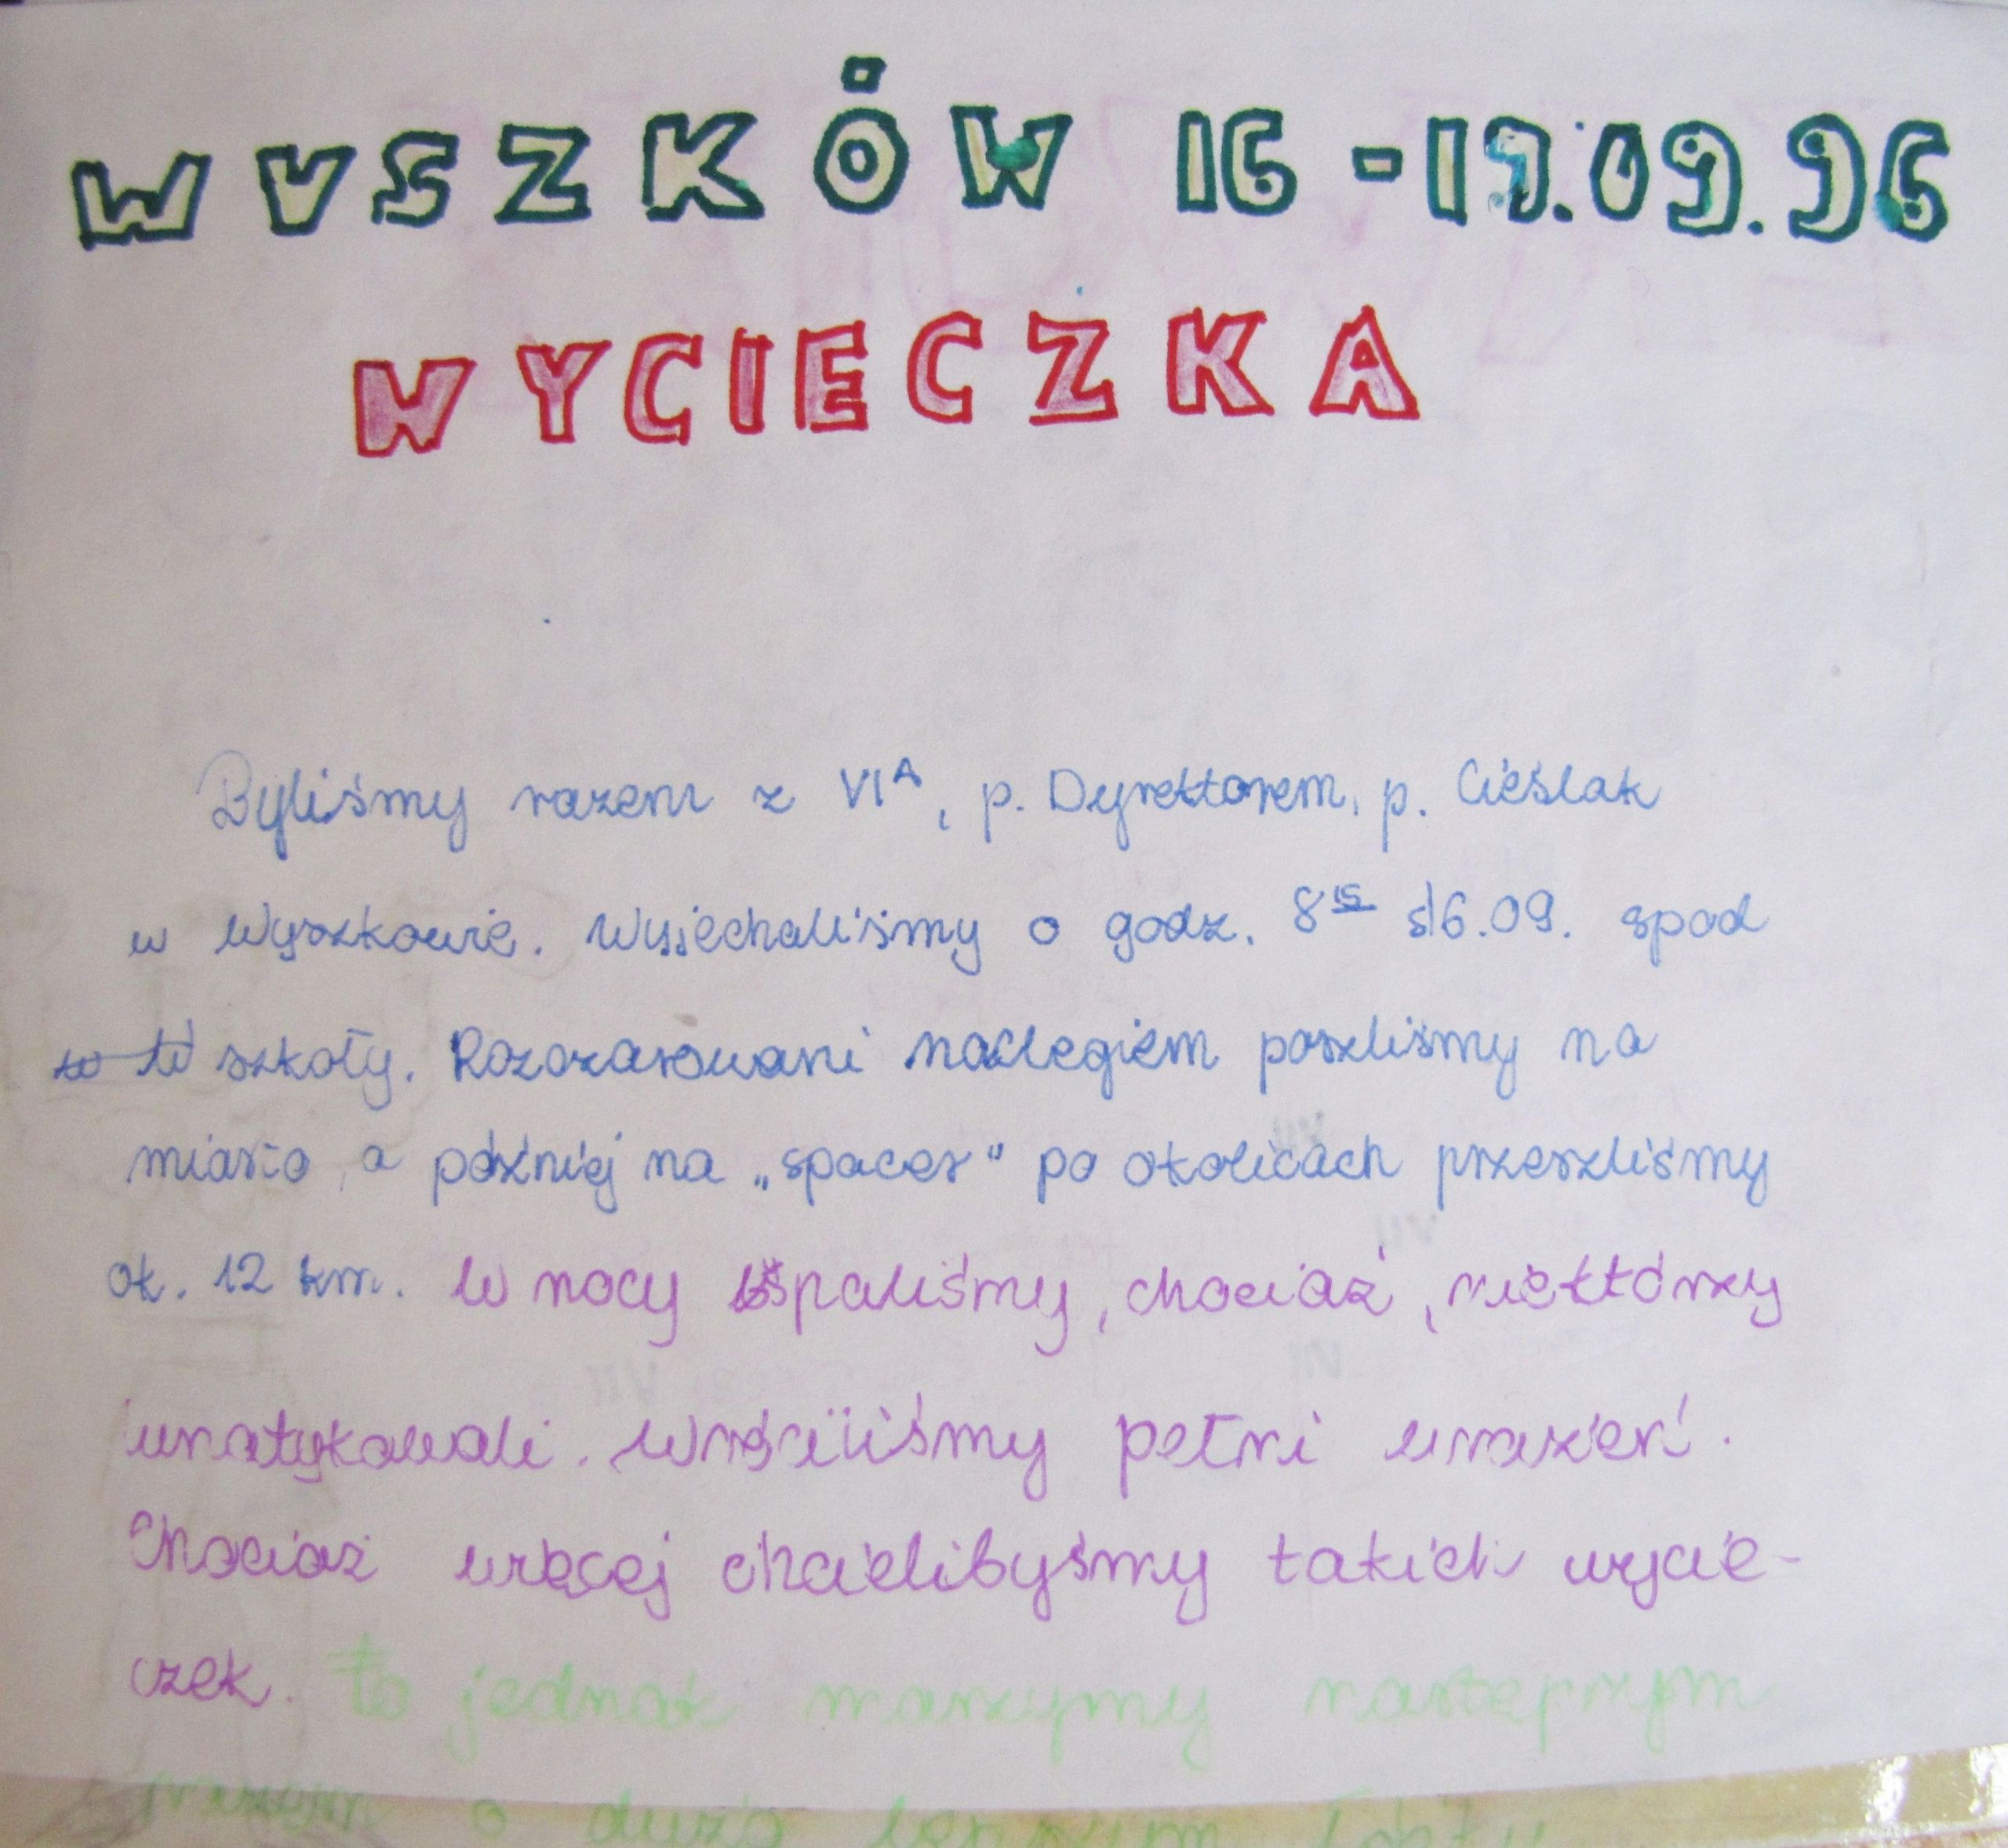 WYSZKÓW 16-17.09.96
WYCIECZKA
Byliśmy razem z VIA, p. Dyrektorem, p. Cieślak
w Wyszkowie. Wyjechaliśmy o godz. 8 15 16.09. spod
szkoły. Rozczarowani noclegiem poszliśmy na
miasto, a później na „spacer" po okolicach przeszliśmy
ok. 12 km. W nocy spaliśmy, chociaż, niektórzy
urzędowali. Wróciliśmy pełni wrażeń.
Chociaż więcej chcielibyśmy takich wycie-
czek. To jednak marzymy następnym
razem o dużo lepszym